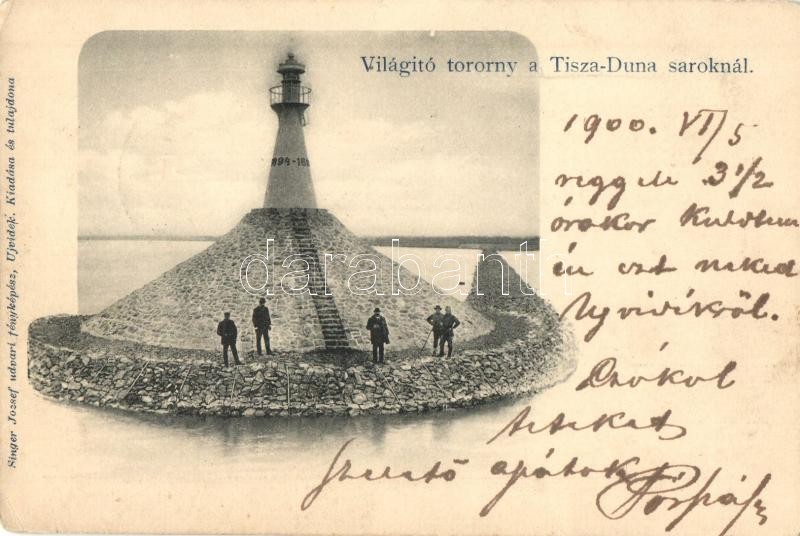 Világitó tororny a Tisza-Duna saroknál.
Singer József udvari fényképész, Ujvidék. Kiadása és tulajdona
1894-18
darabanth.com
1900. VI/5
reggeli 3 1/2
órakor küldtem
én ezt neked
Ujvidékröl.
Csókol
titeket
Szerető apátok